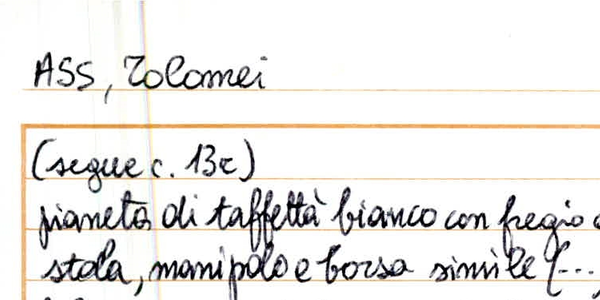 ASS, Tolomei
(segue c. 13r)
pianeta di taffettà bianco con fregio
stola, manipolo e borsa simile (...